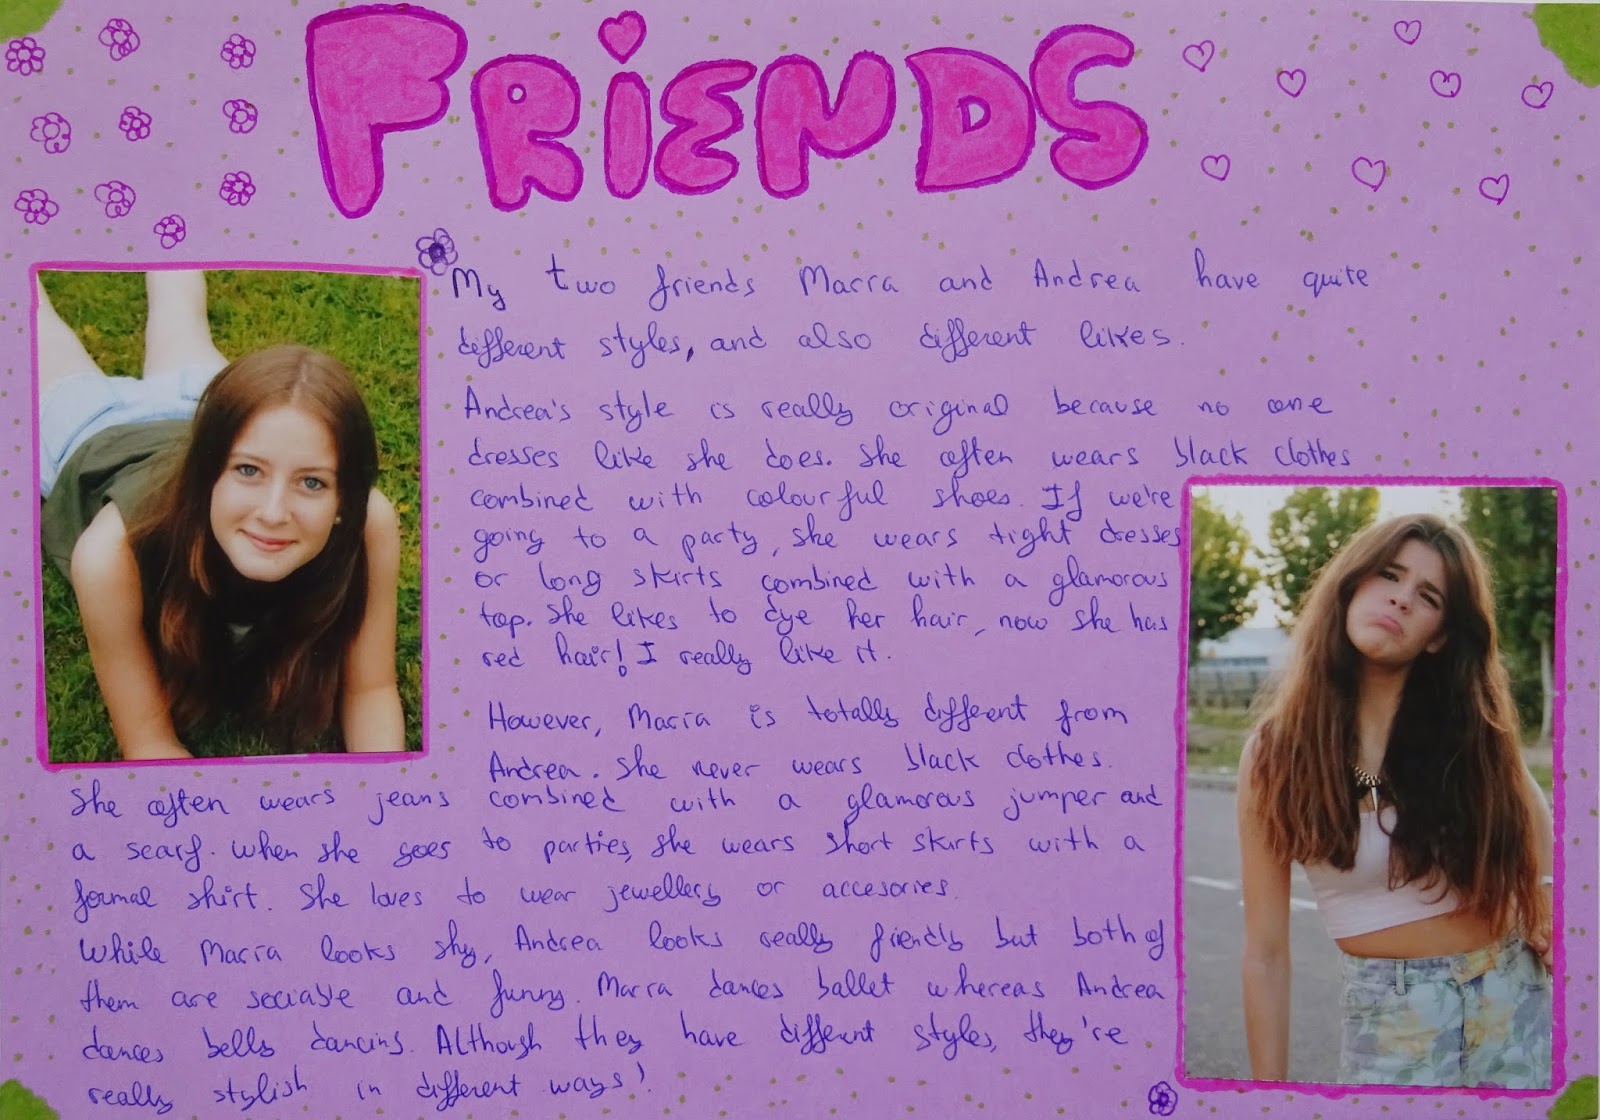 FRiENDS
My two friends María and Andrea have quite
different styles, and also different likes.
Andrea's style is really original because no one
dresses like she does. She often wears black clothes
combined with colourful shoes. If we're
going to a party, she wears tight dresses
or long skirts combined with a glamorous
top. She likes to dye her hair, now she has
red hair! I really like it.
However, María is totally different from
Andrea. She never wears black clothes.
She often wears jeans combined with a glamorous jumper and
a scarf. When she goes to parties, she wears short skirts with a
formal shirt. She loves to wear jewellery or accesories.
While María looks shy, Andrea looks really friendly but both of
them are sociable and funny. María dances ballet whereas Andrea
dances belly dancing. Although they have different styles, they're
really stylish in different ways!